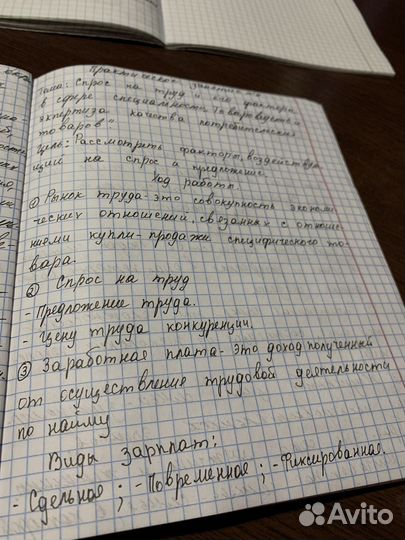 Практическое занятие
Тема: Спрос на труд и его факторы
в сфере специальности Товароведение и
экспертиза качества потребительских
товаров"
Цель: Рассмотреть факторы, воздейству
ющие на спрос и предложение.
Ход работы
① Рынок труда - это совокупность экономи
ческих отношений, связанных с отноше
ниями купли-продажи специфического то-
вара.
② Спрос на труд
- Предложение труда.
- Цену труда конкуренции.
③ Заработная плата - это доход полученный
от осуществления трудовой деятельности
по найму
Виды зарплат:
- Сдельная; - Повременная; - Фиксированная.
Avito